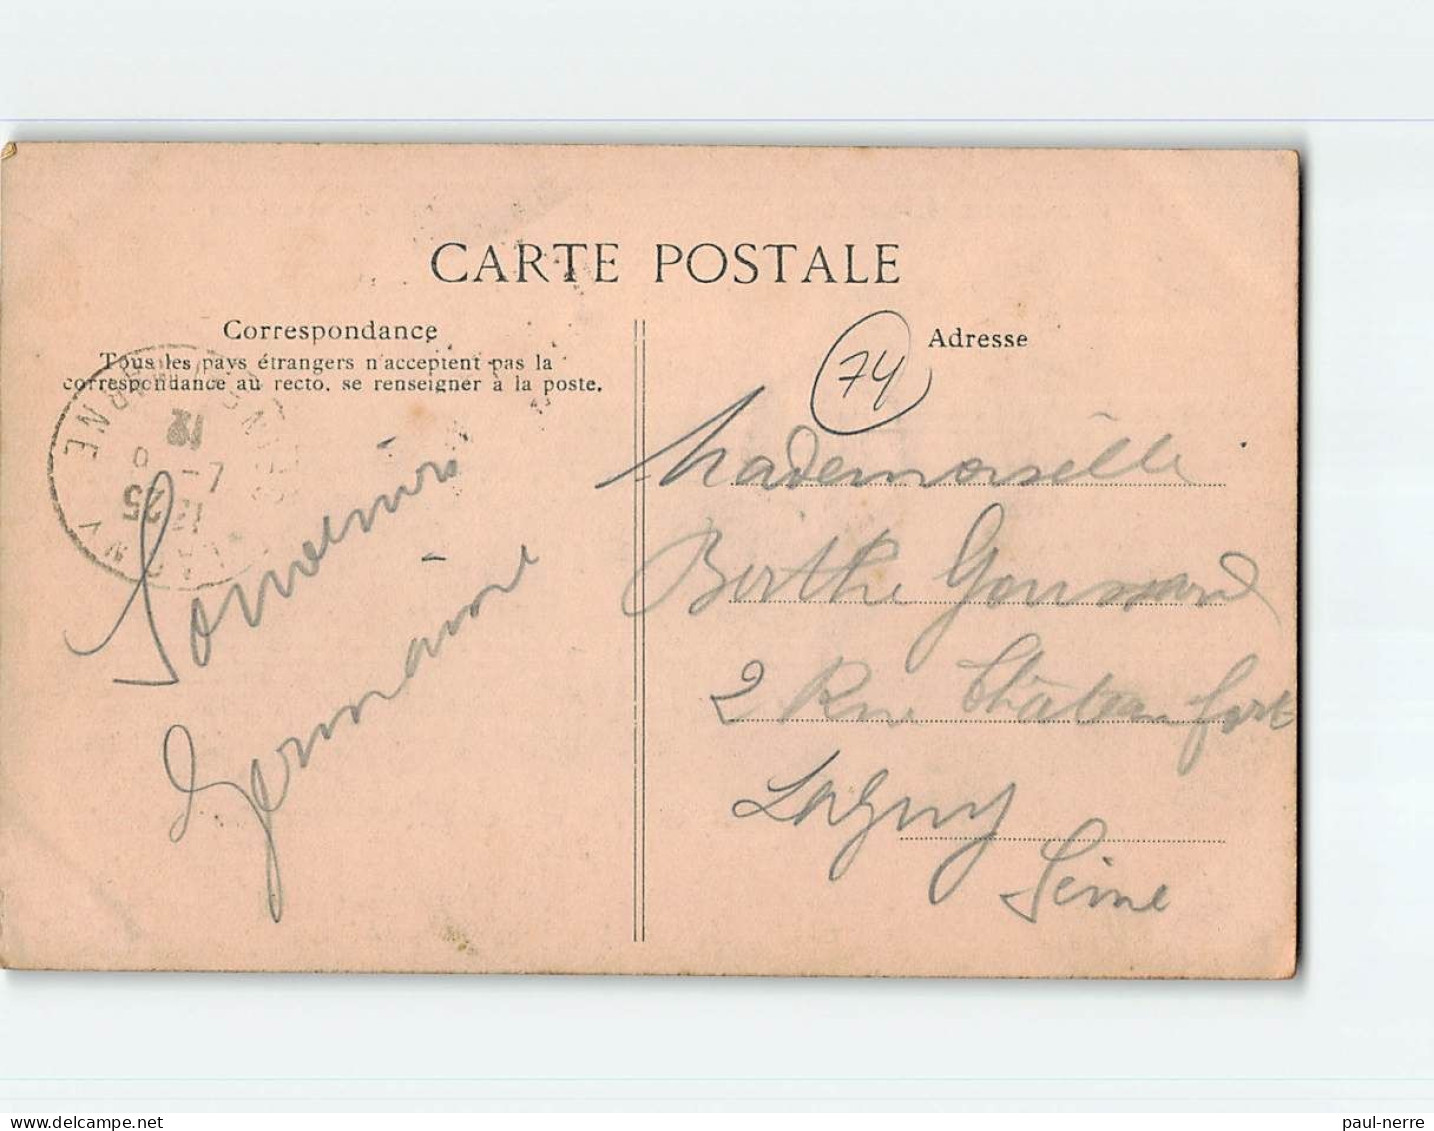 CARTE POSTALE
Correspondance
Tous les pays étrangers n'acceptent pas la
correspondance au recto, se renseigner à la poste.
Adresse
74
Souvenirs
Germaine
Mademoiselle
Berthe
2 Rue Château fort
Lagny
Seine
LAGNY
MARNE
12
7 - 8
25
12
delcampe.net
paul-nerre